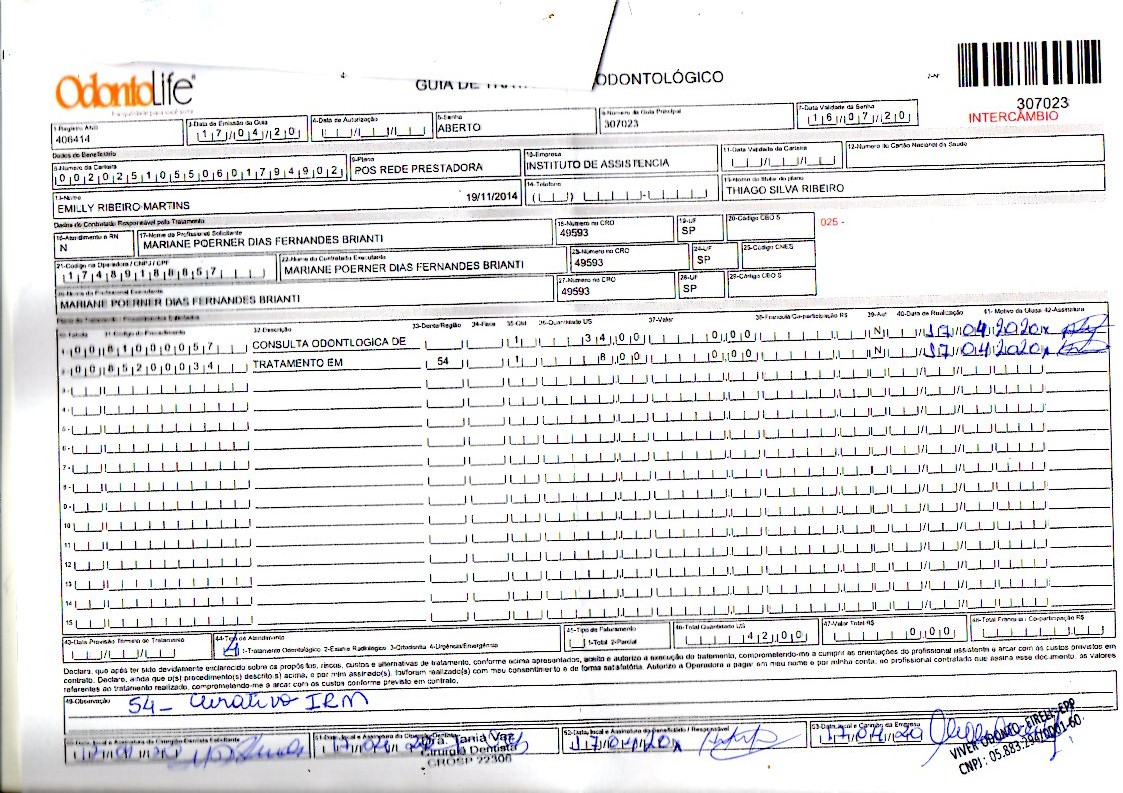 OdontoLife
GUIA DE TRAT ODONTOLÓGICO
2-Nº
307023
INTERCÂMBIO
1-Registro ANS
406414
3-Data de Emissão da Guia
17/04/20
4-Data de Autorização
5-Senha
ABERTO
6-Número da Guia Principal
307023
7-Data Validade da Senha
16/07/20
Dados do Beneficiário
8-Número da Carteira
00202510550601794902
9-Plano
POS REDE PRESTADORA
10-Empresa
INSTITUTO DE ASSISTENCIA
11-Data Validade da Carteira
12-Número do Cartão Nacional de Saúde
13-Nome
EMILLY RIBEIRO MARTINS 19/11/2014
14-Telefone
15-Nome do titular do plano
THIAGO SILVA RIBEIRO
Dados do Contratado Responsável pelo Tratamento
16-Atendimento a RN
N
17-Nome do Profissional Solicitante
MARIANE POERNER DIAS FERNANDES BRIANTI
18-Número no CRO
49593
19-UF
SP
20-Código CBO S
025 -
21-Código na Operadora / CNPJ / CPF
17489188857
22-Nome do Contratado Executante
MARIANE POERNER DIAS FERNANDES BRIANTI
23-Número no CRO
49593
24-UF
SP
25-Código CNES
26-Nome do Profissional Executante
MARIANE POERNER DIAS FERNANDES BRIANTI
27-Número no CRO
49593
28-UF
SP
29-Código CBO S
30-Tabela 31-Código do Procedimento 32-Descrição 33-Dente/Região 34-Face 35-Qtd 36-Quantidade US 37-Valor 38-Franquia/Co-participação R$ 39-Aut 40-Data de Realização 41- Motivo da Glosa 42-Assinatura
1- 00 81000057 CONSULTA ODONTLOGICA DE 1 34,00 0,00 N 17/04/2020
2- 00 85200034 TRATAMENTO EM 54 1 8,00 0,00 N 17/04/2020
3-
4-
5-
6-
7-
8-
9-
10
11
12
13
14
15
43-Data Previsão Término do Tratamento
44-Tipo de Atendimento
4 1-Tratamento Odontológico 2-Exame Radiológico 3-Ortodontia 4-Urgência/Emergência
45-Tipo de Faturamento
1-Total 2-Parcial
46-Total Quantidade US
42,00
47-Valor Total R$
0,00
48-Total Franquia / Co-participação R$
Declaro, que após ter sido devidamente esclarecido sobre os propósitos, riscos, custos e alternativas de tratamento, conforme acima apresentados, aceito e autorizo a execução do tratamento, comprometendo-me a cumprir as orientações do profissional assistente e arcar com os custos previstos em
contrato. Declaro, ainda que o(s) procedimento(s) descrito(s) acima, e por mim assinado(s), foi/foram realizado(s) com meu consentimento e de forma satisfatória. Autorizo a Operadora a pagar em meu nome e por minha conta, ao profissional contratado que assina esse documento, os valores
referentes ao tratamento realizado, comprometendo-me a arcar com os custos conforme previsto em contrato.
49-Observação
54 - Curativo IRM
17/04/20
17/04/20
Dra. Tania Vaz
Cirurgiã Dentista
CROSP 22306
52-Data, local e Assinatura do Beneficiário / Responsável
17/04/20
53-Data, local e Carimbo da Empresa
17/04/20
VIVER ODONTO - EIRELI - EPP
CNPJ: 05.883.294/0001-60